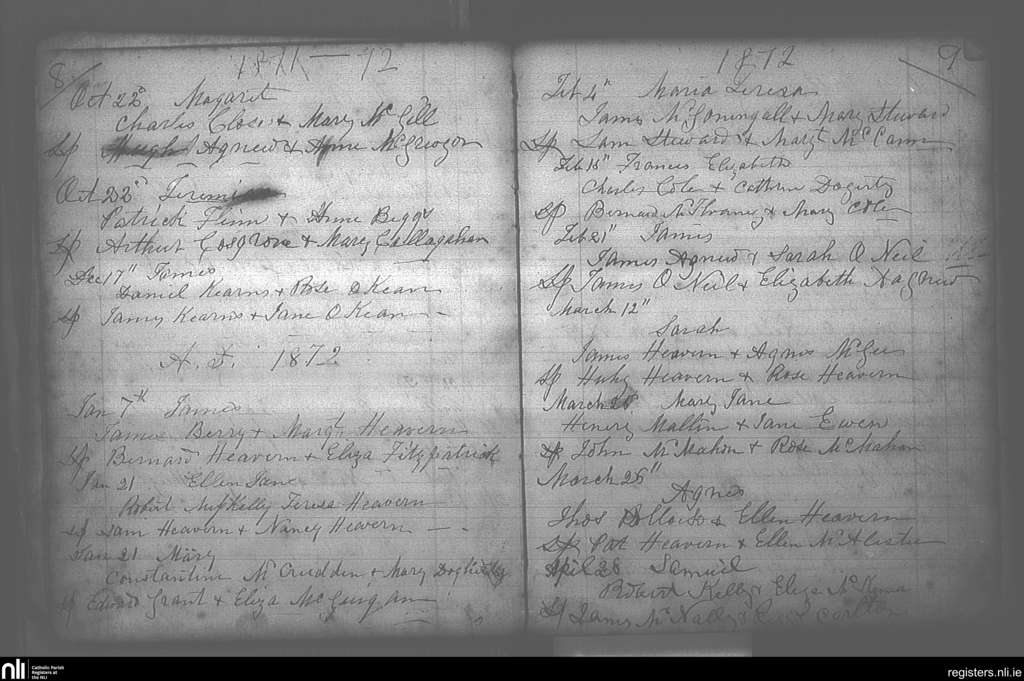 8
1871 - 72
Oct 22d Magaret
Charles Close & Mary McGill
Sp Hugh Agnew & Anne McGreogor
Oct 22d
Patrick Finn & Anne Beggs
Sp Arthur Cosgrove & Mary Callagahan
Dec 17" James
Daniel Kearns & Rose O Kean
Sp James Kearns & Jane O Kean
A. D. 1872
Jan 7th James
James Berry & Margt Heavern
Sp Bernard Heavern & Eliza Fitzpatrick
Jan 21 Ellen Jane
Robert Kelly Teresa Heavern
Sp Sam Heavern & Nancy Heavern
Jan 21 Mary
Constantine McCrudden & Mary
Sp Edward Grant & Eliza McGuigan
1872
9
Feb 4" Maria Teresa
James McGoningall & Mary Steward
Sp Sam Steward & Margt McCann
Feb 18" Francis Elizabeth
Charles Coles & Cathrin Dogerty
Sp Bernard & Mary Coles
Feb 21" James
James Agnew & Sarah O Neil
Sp James O Neil & Elizabeth Aagnew
March 12"
Sarah
James Heavern & Agnes McGee
Sp Huhy Heavern & Rose Heavern
March 26 Mary Jane
Henery Mallin & Jane Ewen
Sp John McMahon & Rose McMahan
March 26"
Agnes
Thos & Ellen Heavern
Sp Pat Heavern & Ellen McAlister
April 28 Samuel
Robert Kelly & Eliza
Sp James McNally &
nli
Catholic Parish
Registers at
the NLI
registers.nli.ie